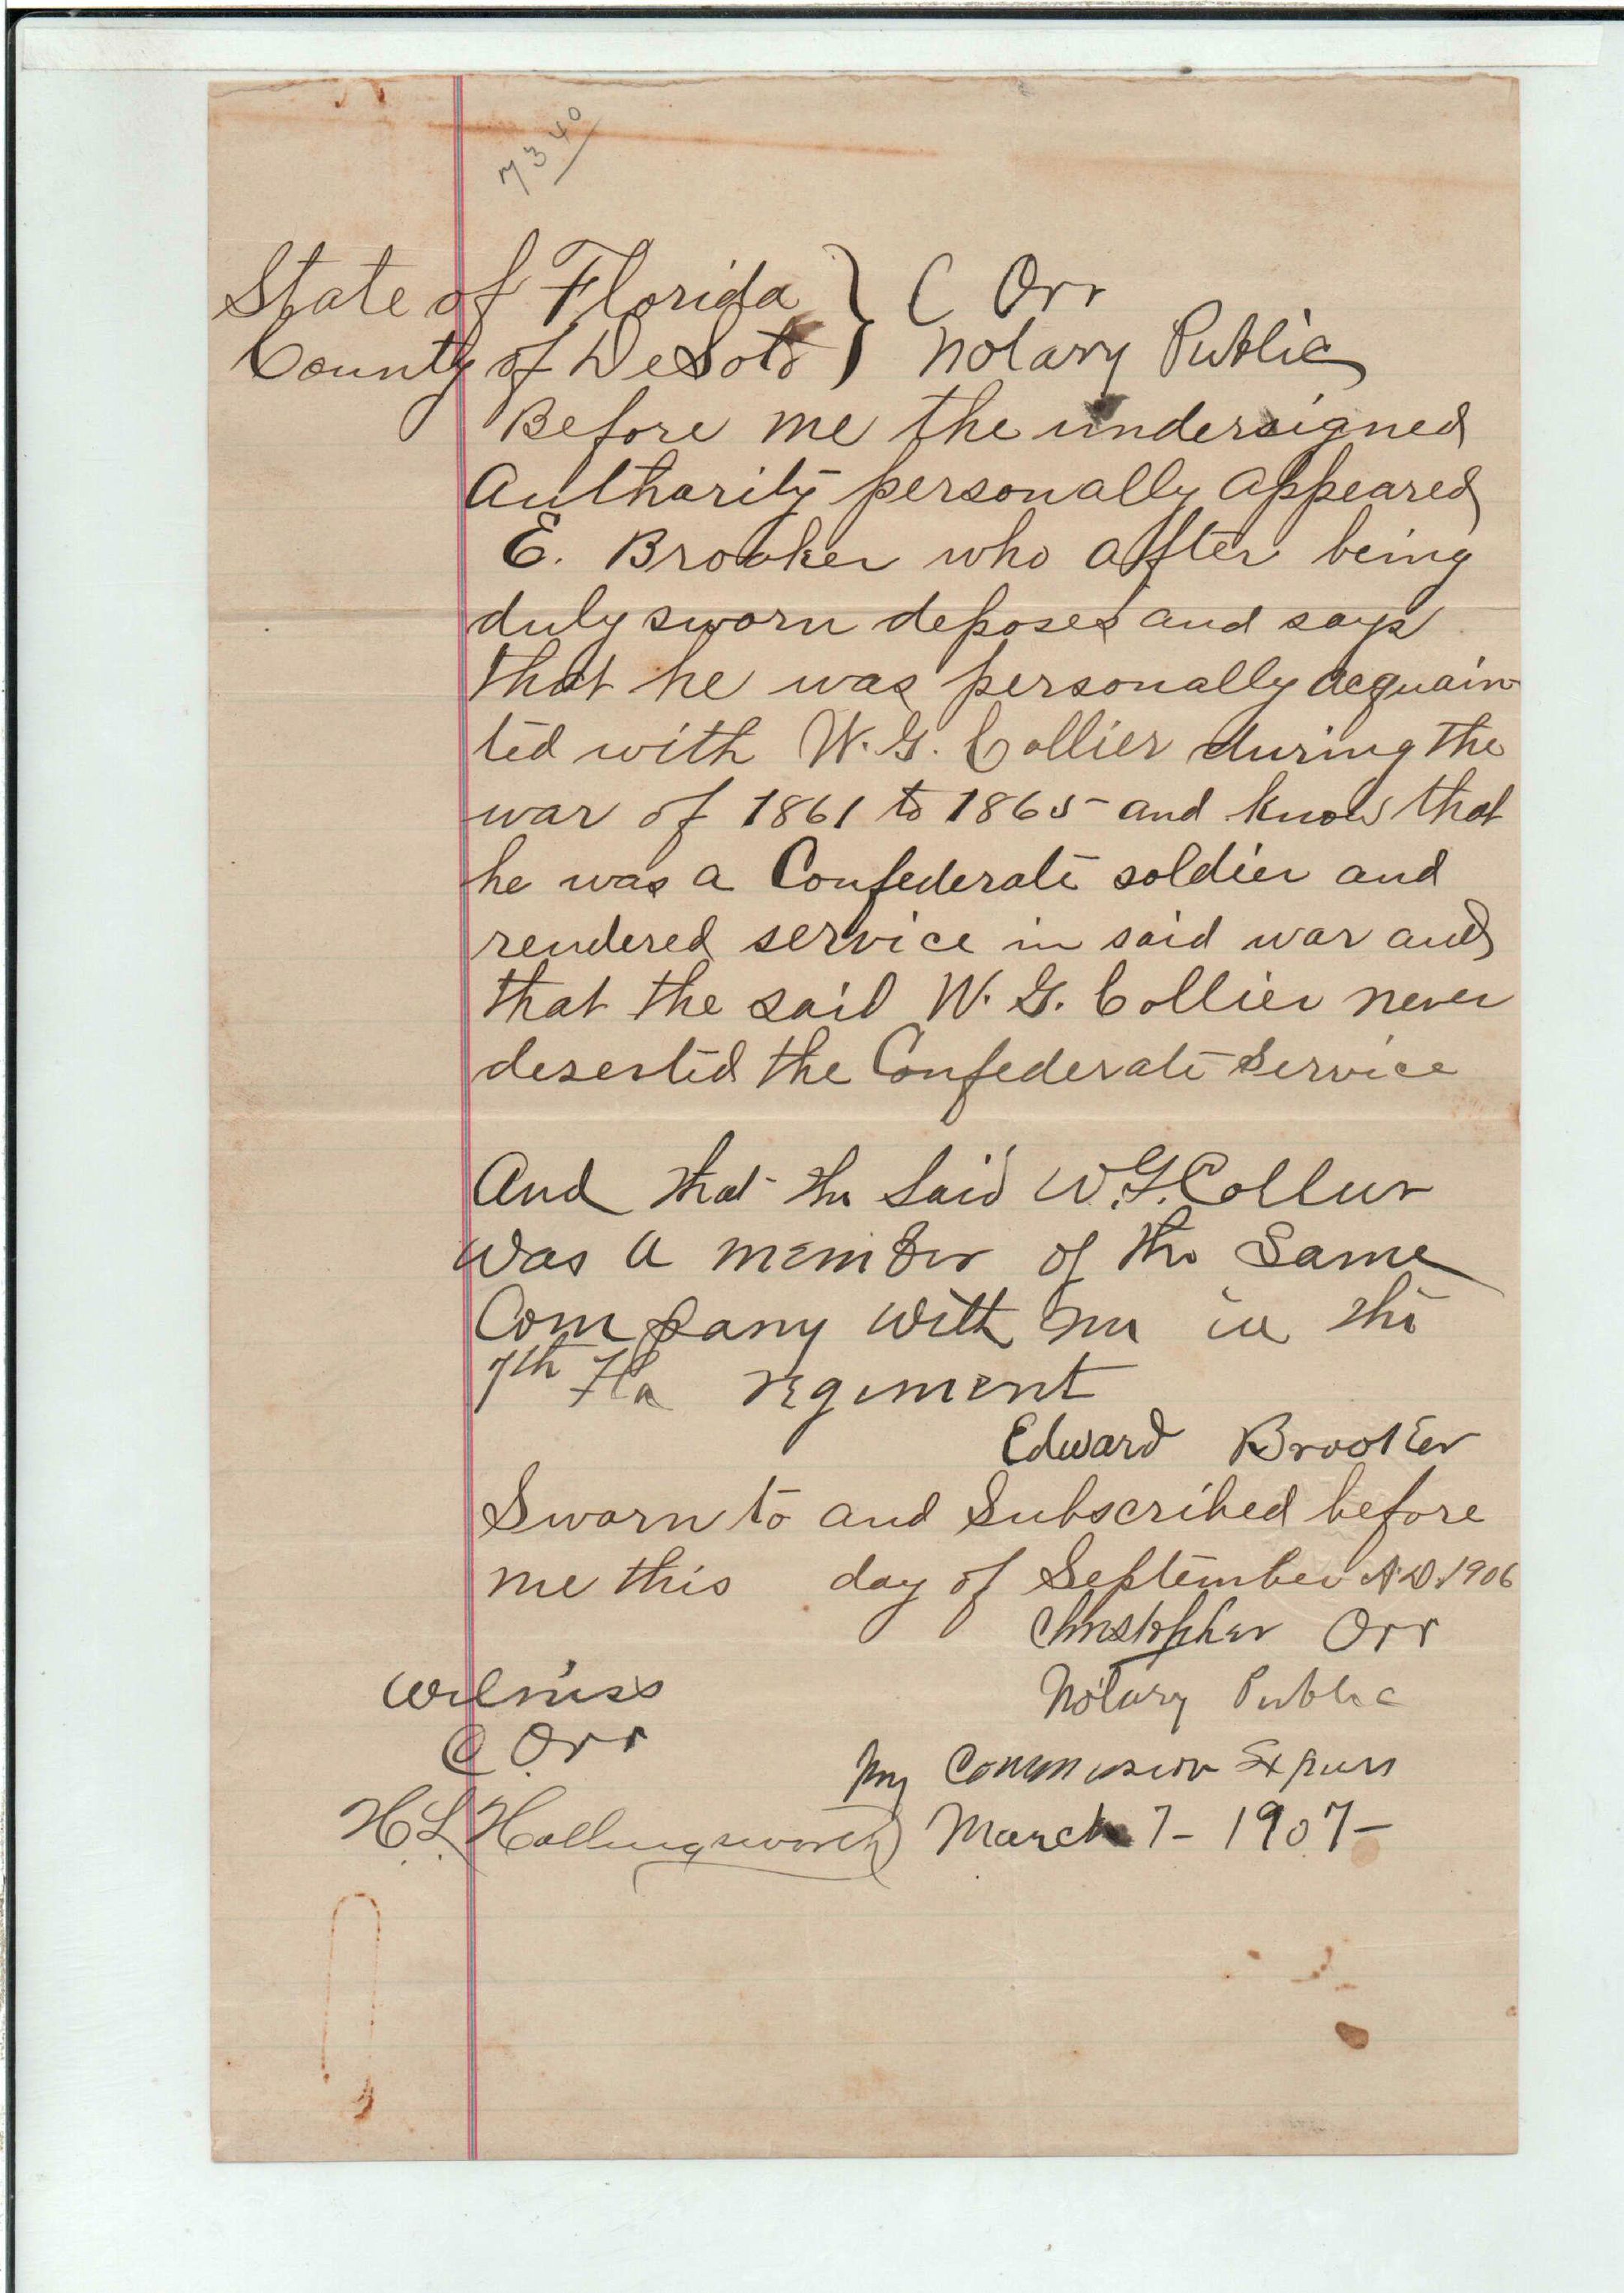 7340
State of Florida } C Orr
County of DeSoto } Notary Public
Before me the undersigned
Authority personally appeared
E. Brooker who after being
duly sworn deposes and says
that he was personally acquain-
ted with W. G. Collier during the
war of 1861 to 1865 and knows that
he was a Confederate soldier and
rendered service in said war and
that the said W. G. Collier never
deserted the Confederate service
And that the said W. G. Collier
was a member of the same
Company with me in the
7th Fla regiment
Edward Brooker
Sworn to and Subscribed before
me this day of September A.D. 1906
Christopher Orr
Witness Notary Public
C Orr My Commission Expires
H. L. Hollingsworth March 7 - 1907 -